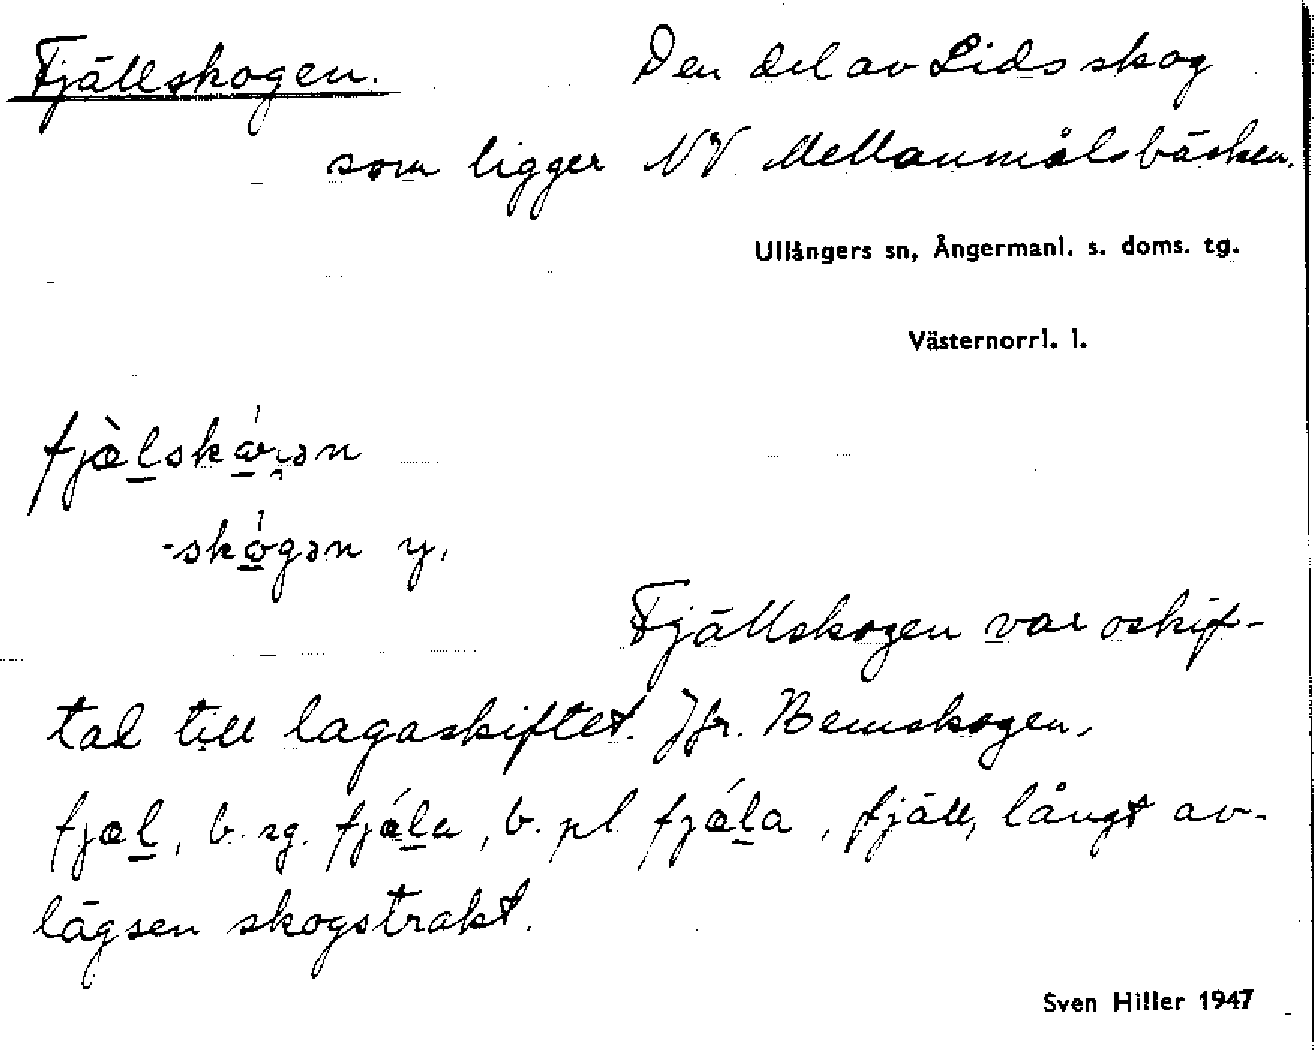 Fjällskogen. Den del av Lids skog
som ligger NV Mellanmålsbäcken.
Ullångers sn, Ångermanl. s. doms. tg.
Västernorrl. l.
-skógən y.
Fjällskogen var oskif-
tad till lagaskiftet. Jfr. Bemskogen.
fjæl, b. sg. , b. pl. fjæ̀la, fjäll, långt av-
lägsen skogstrakt.
Sven Hiller 1947